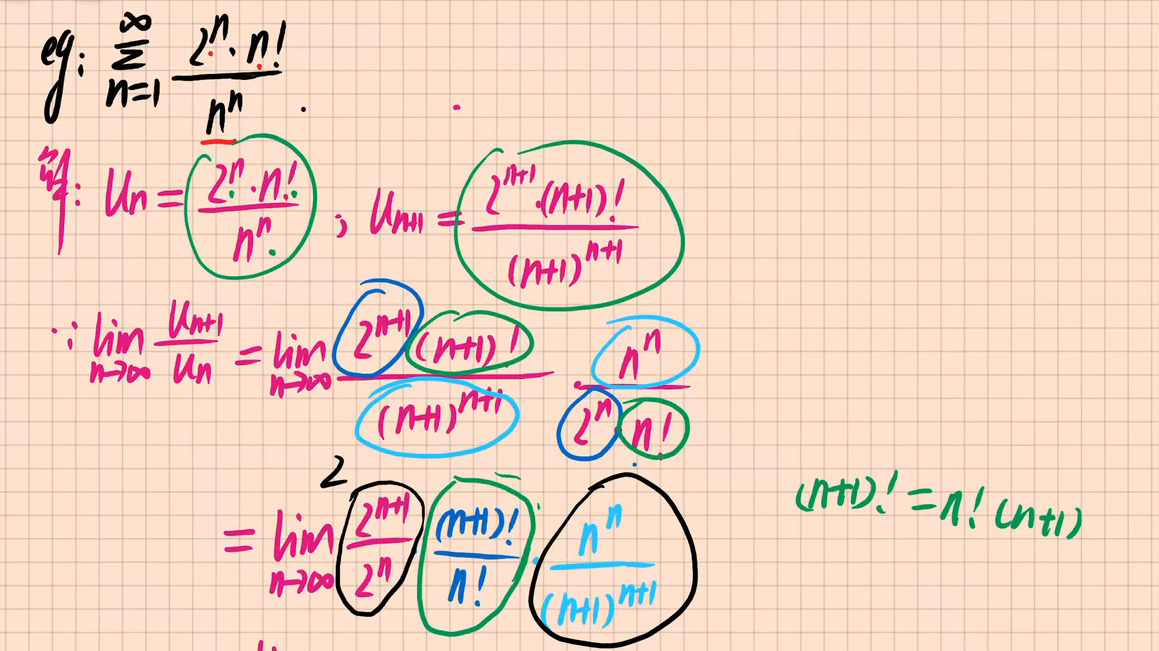 eg: ∞Σn=1 2ⁿ·n! / nⁿ .
解: Un = 2ⁿ·n! / nⁿ ; Un+1 = 2ⁿ⁺¹·(n+1)! / (n+1)ⁿ⁺¹
∵ lim n→∞ Un+1 / Un = lim n→∞ 2ⁿ⁺¹ (n+1)! / (n+1)ⁿ⁺¹ · nⁿ / 2ⁿ n!
2
= lim n→∞ 2ⁿ⁺¹ / 2ⁿ · (n+1)! / n! · nⁿ / (n+1)ⁿ⁺¹
(n+1)! = n! (n+1)